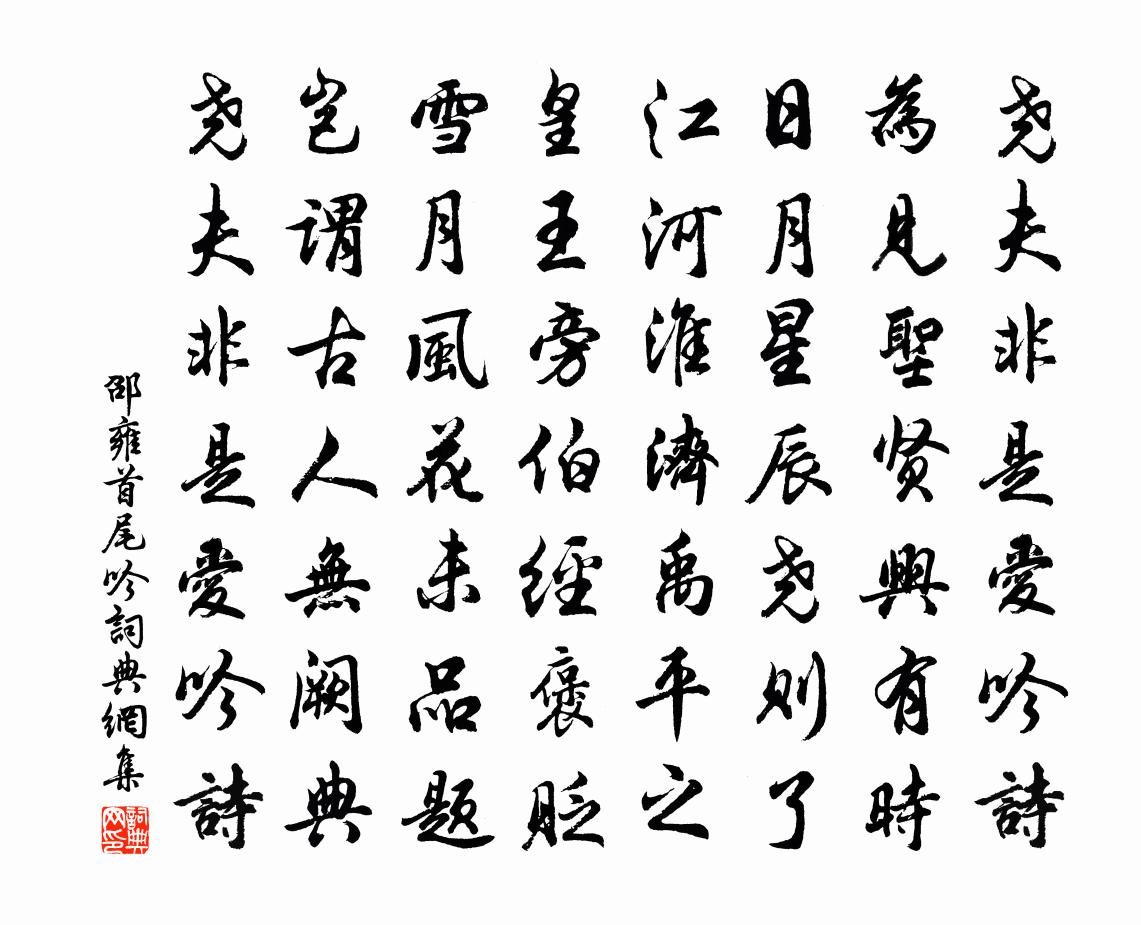 尧夫非是愛吟詩
為見聖贤興有時
日月星辰尧则了
江河淮濟禹平之
皇王旁伯經褒貶
雪月風花未品题
岂謂古人無阙典
尧夫非是愛吟詩
邵雍首尾吟詞典網集
詞典网印